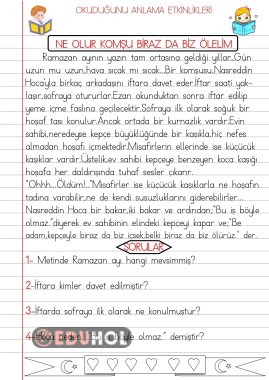 OKUDUĞUNU ANLAMA ETKİNLİKLERİ
NE OLUR KOMŞU BİRAZ DA BİZ ÖLELİM
Ramazan ayının yazın tam ortasına geldiği yıllar...Gün
uzun mu uzun,hava sıcak mı sıcak...Bir komşusu,Nasreddin
Hoca'yla birkaç arkadaşını iftara davet eder.İftar saati yak-
laşır,sofraya otururlar.Ezan okunduktan sonra iftar edilip
yeme içme faslına geçilecektir.Sofraya ilk olarak soğuk bir
hoşaf tası konulur.Ancak ortada bir kurnazlık vardır.Evin
sahibi,neredeyse kepçe büyüklüğünde bir kaşıkla,hiç nefes
almadan hoşafı içmektedir.Misafirlerin ellerinde ise küçücük
kaşıklar vardır.Üstelik,ev sahibi kepçeye benzeyen koca kaşığı
hoşafa her daldırışında tuhaf sesler çıkarır.
"Ohhh...Öldüm!.."Misafirler ise küçücük kaşıklarla ne hoşafın
tadına varabilir,ne de kendi susuzluklarını giderebilirler...
Nasreddin Hoca bir bakar,iki bakar ve ardından;"Bu iş böyle
olmaz."diyerek ev sahibinin elindeki kepçeyi kapar ve:"Be
adam,kepçeyle biraz da biz içsek,belki biraz da biz ölürüz." der.
SORULAR
1- Metinde Ramazan ayı hangi mevsimmiş?
2-İftara kimler davet edilmiştir?
3-İftarda sofraya ilk olarak ne konulmuştur?
4- olmaz." demiştir?